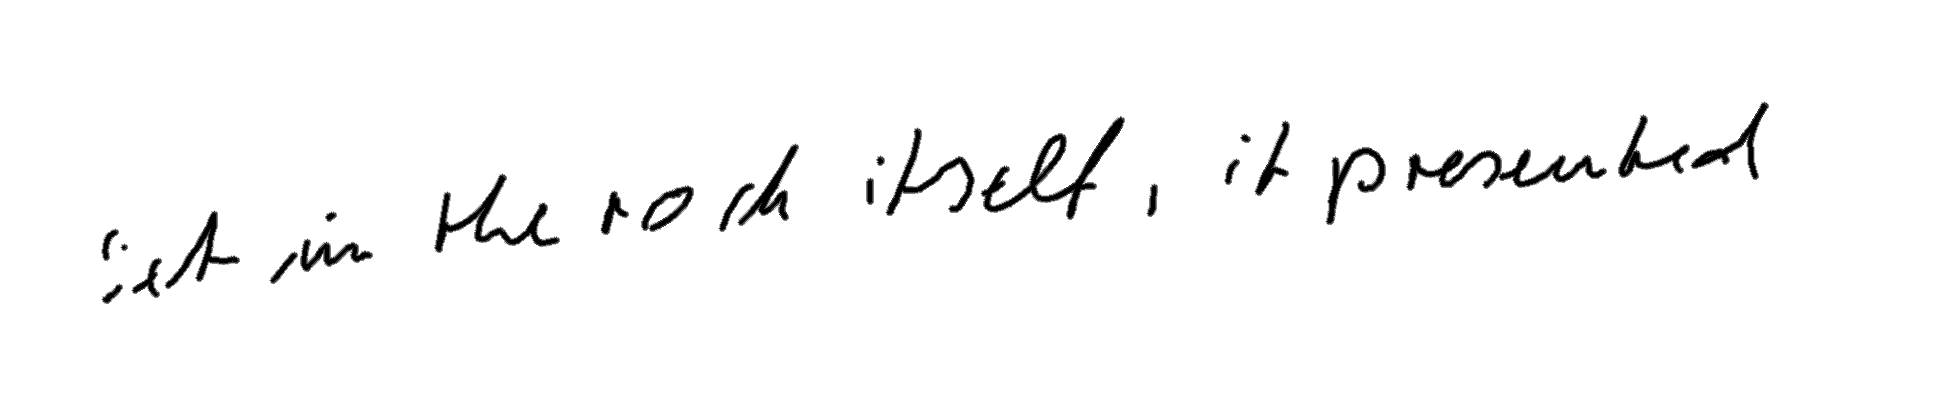 set in the rock itself, it presented